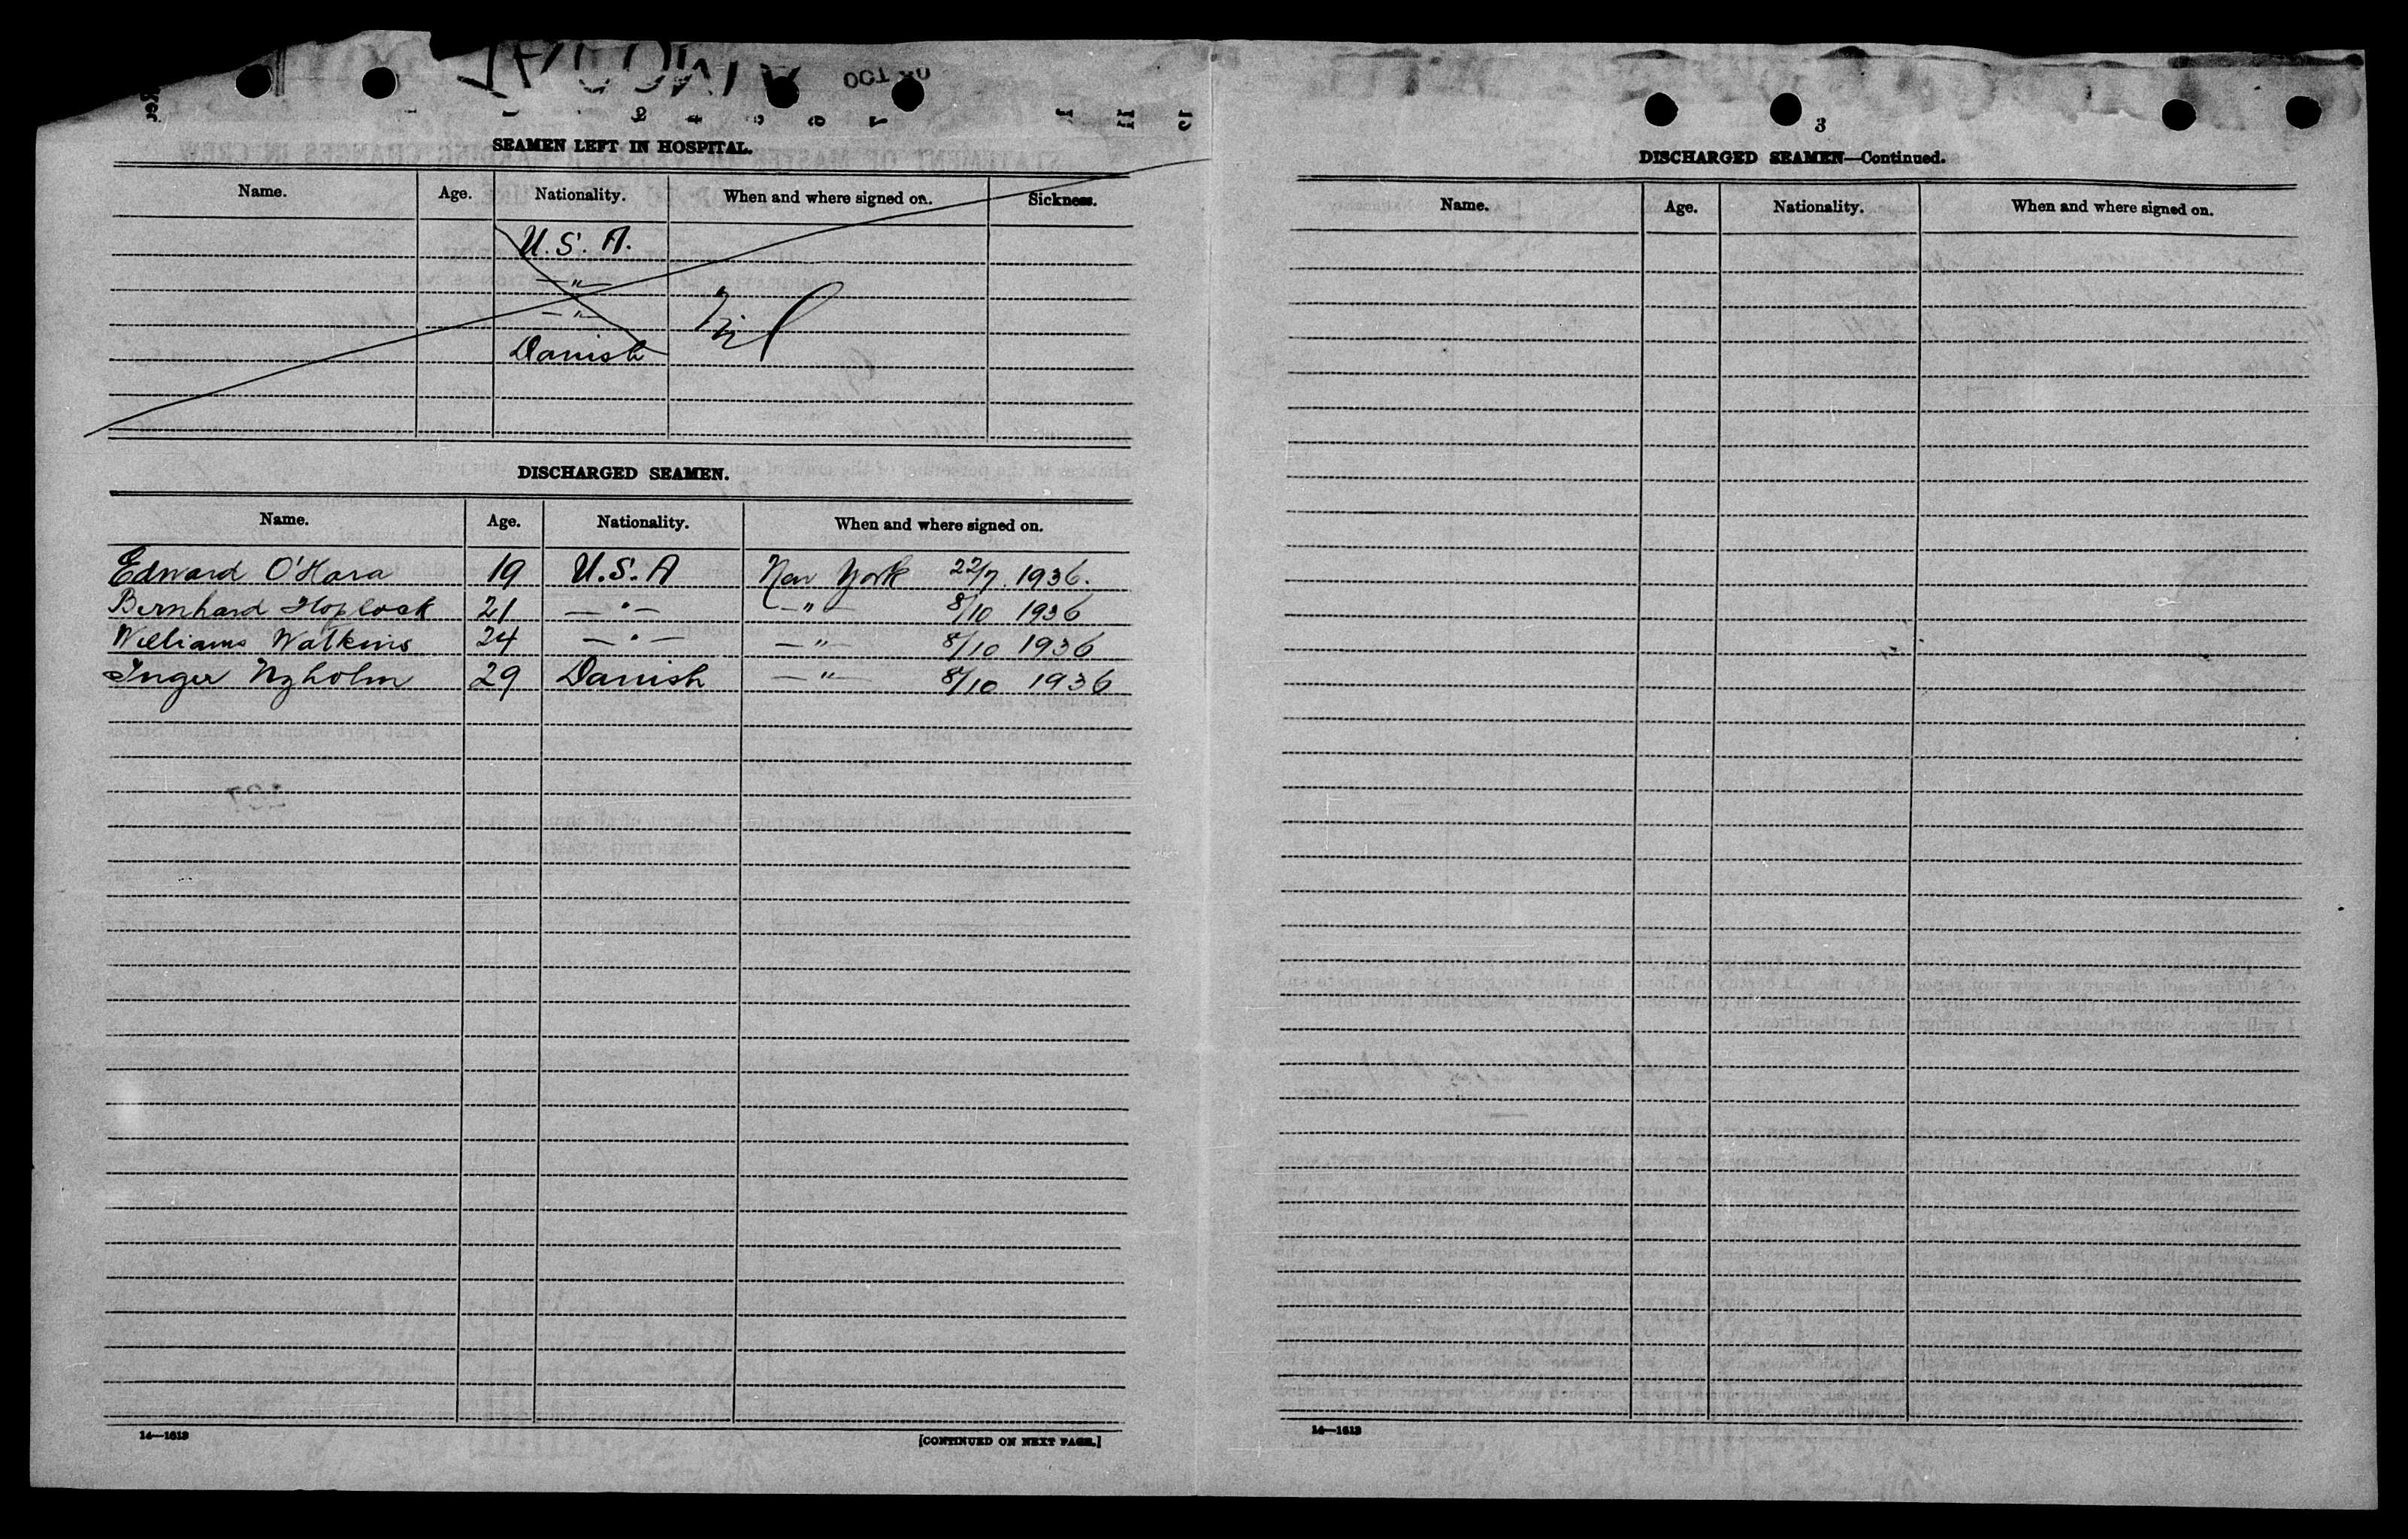 OCT
SEAMEN LEFT IN HOSPITAL.
Name. Age. Nationality. When and where signed on. Sickness.
U. S. A.
— " —
— " — Nil
Danish
DISCHARGED SEAMEN.
Name. Age. Nationality. When and where signed on.
Edward O'Hara 19 U.S.A New York 22/7 1936.
Bernhard Hoplock 21 — " — — " — 8/10 1936
Williams Watkins 24 — " — — " — 8/10 1936
Inger Nyholm 29 Danish — " — 8/10 1936
14—1613
[CONTINUED ON NEXT PAGE.]
3
DISCHARGED SEAMEN—Continued.
Name. Age. Nationality. When and where signed on.
14—1613